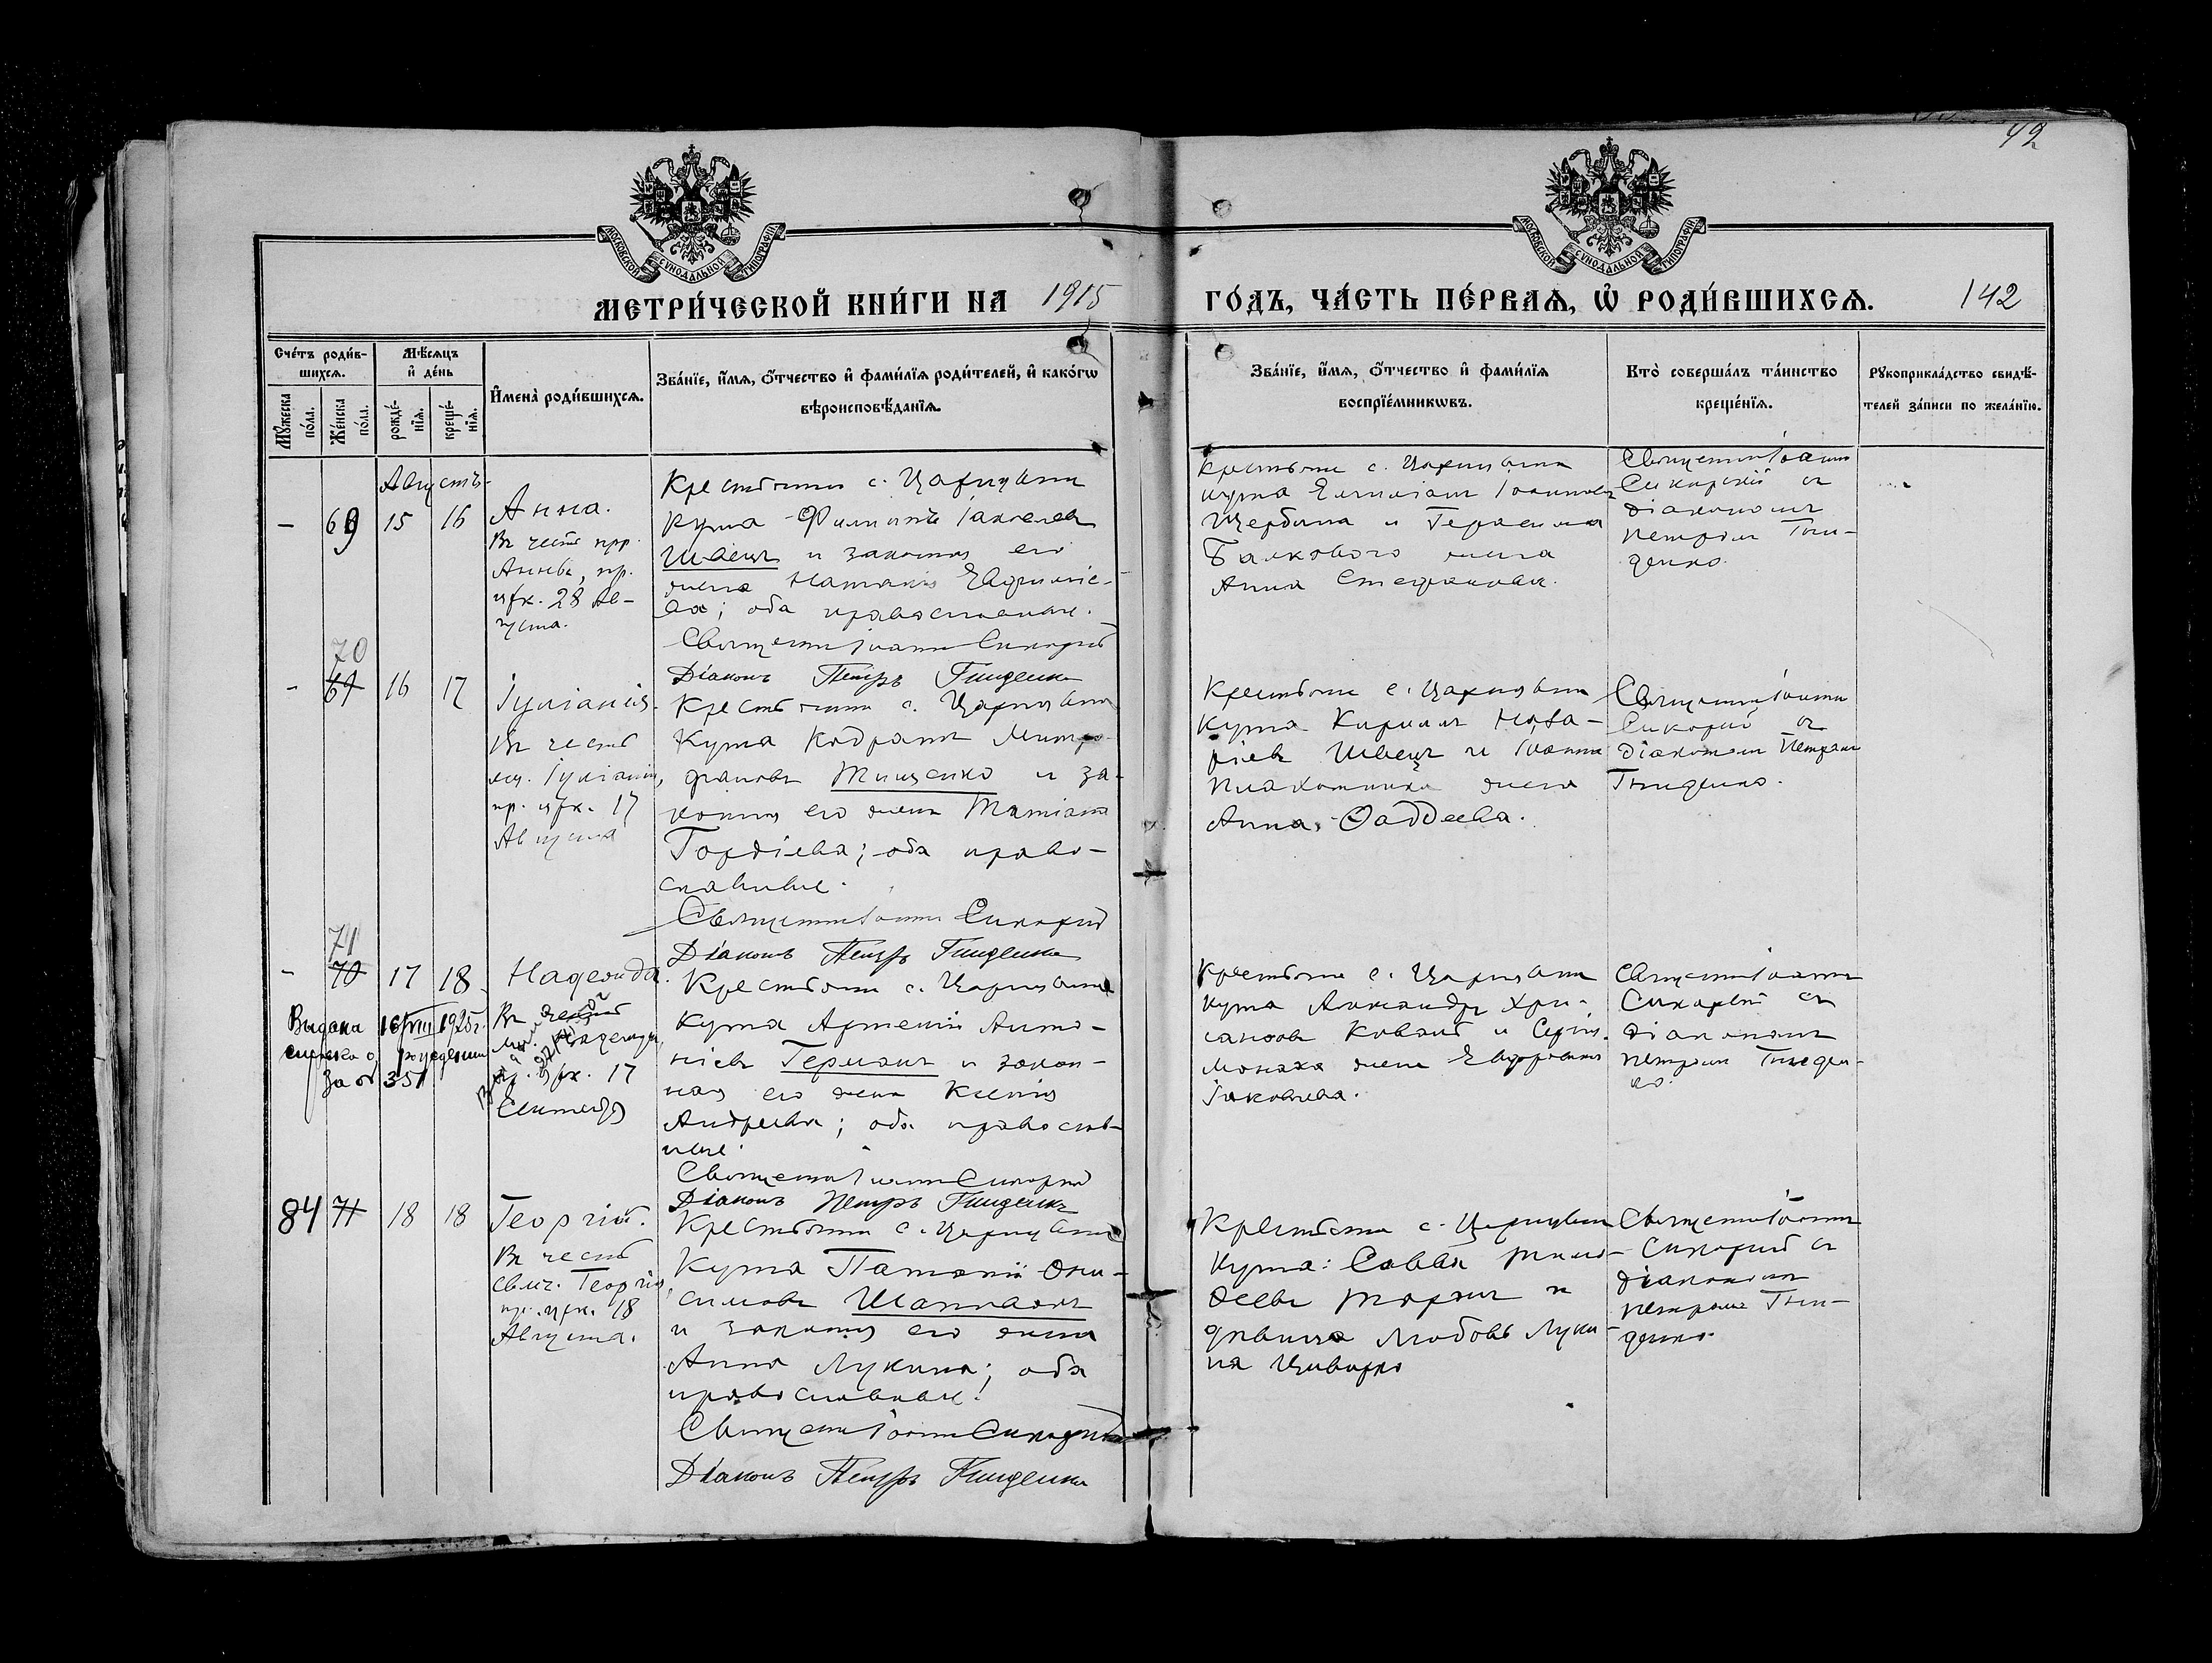 42
МОСКОВСКОЙ СѴНОДАЛЬНОЙ ТИПОГРАФІИ
МОСКОВСКОЙ СѴНОДАЛЬНОЙ ТИПОГРАФІИ
МЕТРИ́ЧЕСКОЙ КНИ́ГИ НА 1915
ГО́ДЪ, ЧА́СТЬ ПЕ́РВАѦ, Ѡ҆ РОДИ́ВШИХСѦ. 142
Сче́тъ роди́в-
шихсѧ.
Мѣ́сѧцъ
и҆ де́нь
Мꙋ́жеска
по́ла.
Же́нска
по́ла.
рожде́-
нїѧ.
креще́-
нїѧ.
И҆мена̀ роди́вшихсѧ.
Зва́нїе, и҆́мѧ, ѻ҆́тчество и҆ фами́лїѧ роди́телей, и҆ како́гѡ
вѣроисповѣ́данїѧ.
Зва́нїе, и҆́мѧ, ѻ҆́тчество и҆ фами́лїѧ
воспрїе́мникѡвъ.
Кто̀ соверша́лъ та́инство
креще́нїѧ.
Рꙋкоприкла́дство свидѣ́-
телей за́писи по жела́нїю.
Августъ
- 69 15 16
Анна.
Въ честь прр.
Анны, пр.
црк. 28 Ав-
густа.
Крестьянинъ с. Царицына
Кута Филиппъ Іаковлевъ
Швецъ и законная его
жена Наталія Евфиміе-
ва; оба православные.
Священникъ Іоаннъ Сикорскій
Діаконъ Петръ Гниденко
Крестьяне с. Царицына
кута Іоанновъ
Щербина и Герасима
жена
Анна Стефанова.
Священникъ Іоаннъ
Сикорскій съ
діакономъ
Петромъ Гни-
денко.
70
- 69 16 17
Іуліанія.
Въ честь
мц. Іуліаніи,
пр. црк. 17
Августа
Крестьянинъ с. Царицына
Кута Кодратъ Митро-
фановъ Тищенко и за-
конная его жена Татіана
Гордіева; оба право-
славные.
Священникъ Іоаннъ Сикорскій
Діаконъ Петръ Гниденко
Крестьяне с. Царицына
Кута Кириллъ
Швецъ и Іоанна
жена
Анна Фаддеева.
Священникъ Іоаннъ
Сикорскій съ
діакономъ Петромъ
Гниденко.
71
- 70 17 18
Надежда.
Въ честь
мц. Надежды,
пр. црк. 17
Сентября
Видана 16/VIII 1925 г.
за № 351
Крестьянинъ с. Царицына
Кута Артемій Анто-
ніевъ Германъ и закон-
ная его жена Ксенія
Андреева; оба православ-
ные.
Священникъ Іоаннъ Сикорскій
Діаконъ Петръ Гниденко
Крестьяне с. Царицына
кута Александръ Хри-
санфовъ и Сергія
Монаха жена Евфросинія
Іаковлева.
Священникъ Іоаннъ
Сикорскій съ
діакономъ
Петромъ Гниден-
ко.
84 71 18 18
Георгій.
Въ честь
Георгія,
пр. црк. 18
Августа.
Крестьянинъ с. Царицына
Кута Патапій Они-
симовъ
и законная его жена
Анна Лукина; оба
православные.
Священникъ Іоаннъ Сикорскій
Діаконъ Петръ Гниденко
Крестьяне с. Царицына
Кута: Савва Тимо-
феевъ и
дѣвица Любовь Луки-
на
Священникъ Іоаннъ
Сикорскій съ
діакономъ
Петромъ Гни-
денко.